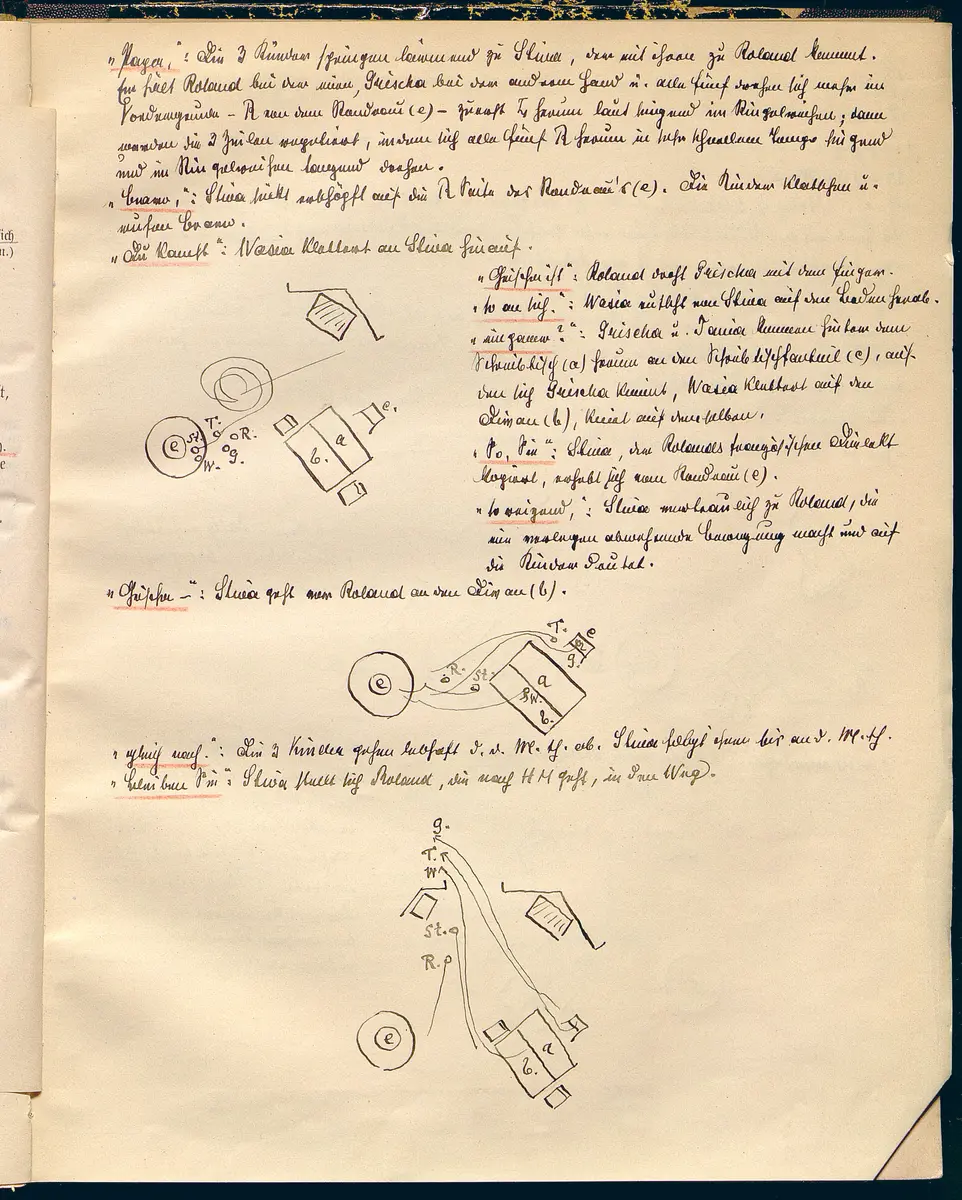 „Papa,“: Die 3 Kinder springen lärmend zu Stiwa, der mit ihnen zu Roland kommt.
Er hält Roland bei der einen, Grischa bei der andern Hand u. alle fünf drehen sich mehr im
Vordergrunde – R von dem Rondeau (e) – zuerst L herum laut singend im Ringelreihen; dann
werden die 3 Zeilen repetiert, indem sich alle fünf R herum in sehr schnellem Tempo singend
und im Ringelreihen tanzend drehen.
„bravo,“: Stiwa sinkt erschöpft auf die R Seite des Rondeau's (e). Die Kinder klatschen u.
rufen bravo.
„Du kannst“: Wasia klettert an Stiwa hinauf.
„Grischa ist“: Roland droht Grischa mit dem Finger.
„so an sich.“: Wasia rutscht von Stiwa auf den Boden herab.
„ein ganzer?“: Grischa u. Tania kommen hinter dem
Schreibtisch (a) herum an den Schreibtischfauteuil (c), auf
den sich Grischa kniet, Wasia klettert auf den
Diwan (b), kniet auf demselben.
„So, Sie“: Stiwa, der Rolands französischen Dialekt
kopiert, erhebt sich vom Rondeau (e).
„so reizend,“: Stiwa vertraulich zu Roland, die
eine verlegen abwehrende Bewegung macht und auf
die Kinder deutet.
e
St.
T.
R.
W.
g.
b.
a
c.
„Grischa –“: Stiwa geht vor Roland an den Diwan (b).
e
R.
St.
T.
c
g.
a
W.
b.
„gleich nach.“: Die 3 Kinder gehen lebhaft d. d. M. th. ab. Stiwa folgt ihnen bis an d. M. th.
„bleiben Sie“: Stiwa stellt sich Roland, die nach H M geht, in den Weg.
g.
T.
W
St.
R.
e
a
b.
ich
n.)